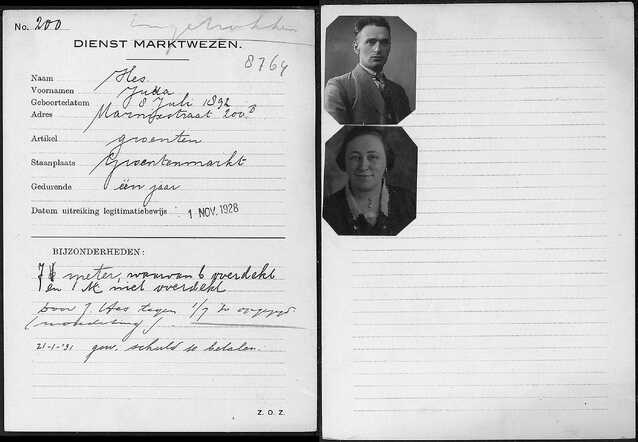 No. 200
ingetrokken
DIENST MARKTWEZEN.
8764
Naam Hes.
Voornamen Juda
Geboortedatum 8 Juli 1892
Adres Marnixstraat 200 B
Artikel groenten
Staanplaats Groentenmarkt
Gedurende één jaar
Datum uitreiking legitimatiebewijs 1 NOV. 1928
BIJZONDERHEDEN:
meter, waarvan 6 overdekt
en 1 M. niet overdekt
door J Hes tegen 1/7 30 opgezegd
(mondeling)
21-1-'31 gew. schuld te betalen.
Z. O. Z.